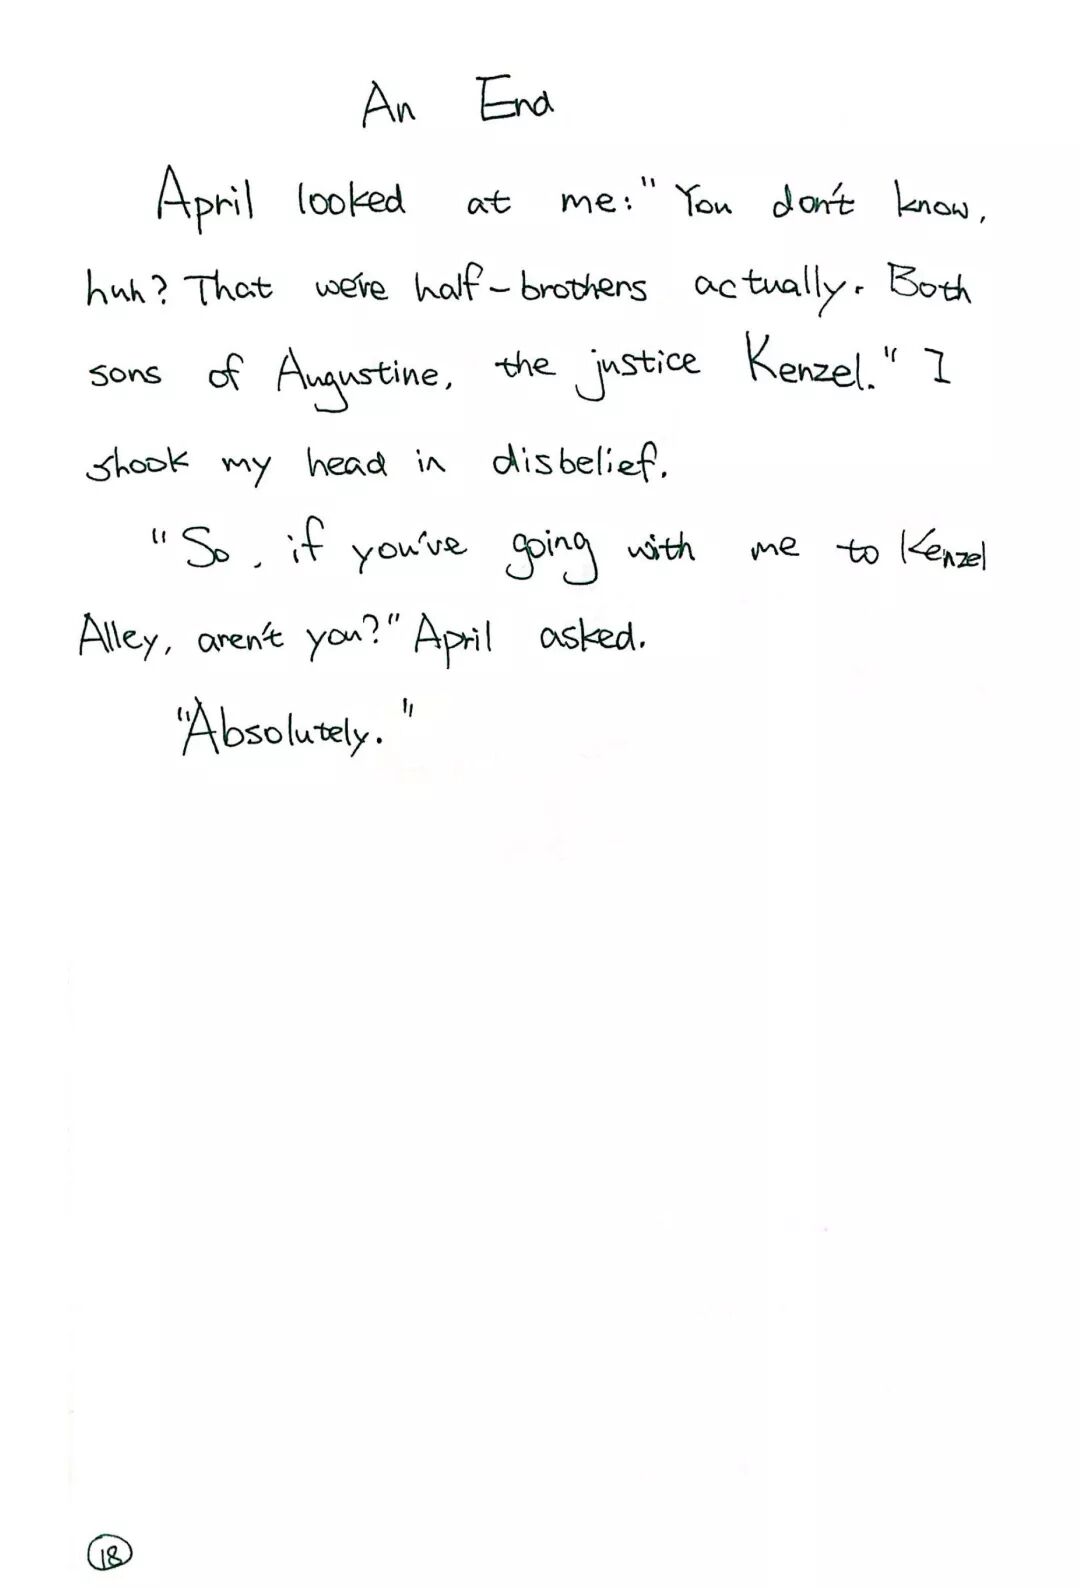 An End
April looked at me:" You don't know,
huh? That we're half-brothers actually. Both
sons of Augustine, the justice Kenzel." I
shook my head in disbelief.
"So, if you've going with me to Kenzel
Alley, aren't you?" April asked.
"Absolutely."
18